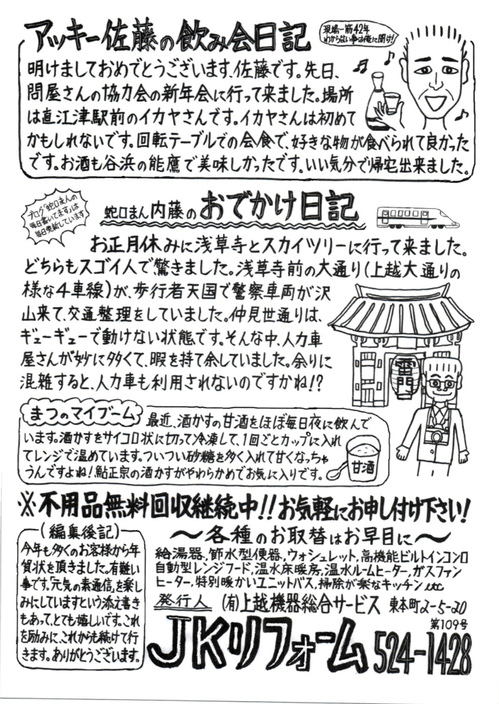 アッキー佐藤の飲み会日記
現場一筋42年
わからない事は俺に聞け!
明けましておめでとうございます、佐藤です。先日、
問屋さんの協力会の新年会に行って来ました。場所
は直江津駅前のイカヤさんです。イカヤさんは初めて
かもしれないです。回転テーブルでの会食で、好きな物が食べられて良かった
です。お酒も谷浜の能鷹で美味しかったです。いい気分で帰宅出来ました。
ブログ「蛇口まんの
明日書いてますは
毎日更新しています
蛇口まん内藤のおでかけ日記
お正月休みに浅草寺とスカイツリーに行って来ました。
どちらもスゴイ人で驚きました。浅草寺前の大通り(上越大通りの
様な4車線)が、歩行者天国で警察車両が沢
山来て、交通整理をしていました。仲見世通りは、
ギューギューで動けない状態です。そんな中、人力車
屋さんが妙に多くて、暇を持て余していました。余りに
混雑すると、人力車も利用されないのですかね!?
まつのマイブーム
最近、酒かすの甘酒をほぼ毎日夜に飲んで
います。酒かすをサイコロ状に切って冷凍して、1回ごとカップに入れ
てレンジで温めています。ついつい砂糖を多く入れて甘くなっちゃ
うんですよね!鮎正宗の酒かすがやわらかめでお気に入りです。
甘酒
※不用品無料回収継続中!!お気軽にお申し付け下さい!
(編集後記)
今年も多くのお客様から年
賀状を頂きました。有難い
事です。「元気の素通信」を楽し
みにしていますという添え書き
もあって、とても嬉しいです。これ
を励みに、これからも続けて行
きます。ありがとうございます。
〜各種のお取替はお早目に〜
給湯器、節水型便器、ウォシュレット、高機能ビルトインコンロ
自動型レンジフード、温水床暖房、温水ルームヒーター、ガスファン
ヒーター、特別暖かいユニットバス、掃除が楽なキッチン etc
発行人 (有)上越機器総合サービス 東本町2-5-20
第109号
JKリフォーム 524-1428